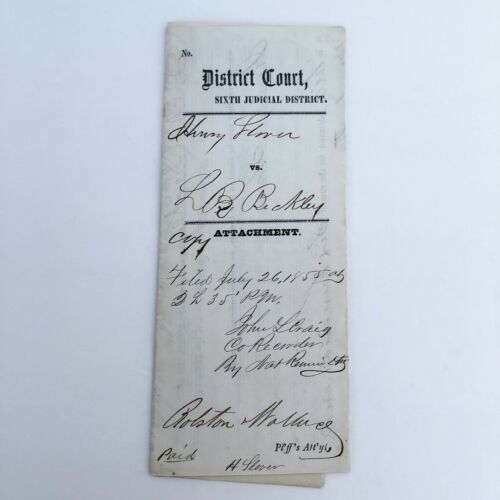 No.
District Court,
SIXTH JUDICIAL DISTRICT.
Henry Slover
vs.
L B Beckley
copy ATTACHMENT.
Filed July 26, 1855 at
2 h 35' P.M.
John L Craig
Co Recorder
By
Rolston & Wallace
Pl'ff's Att'ys
Paid
H Slover